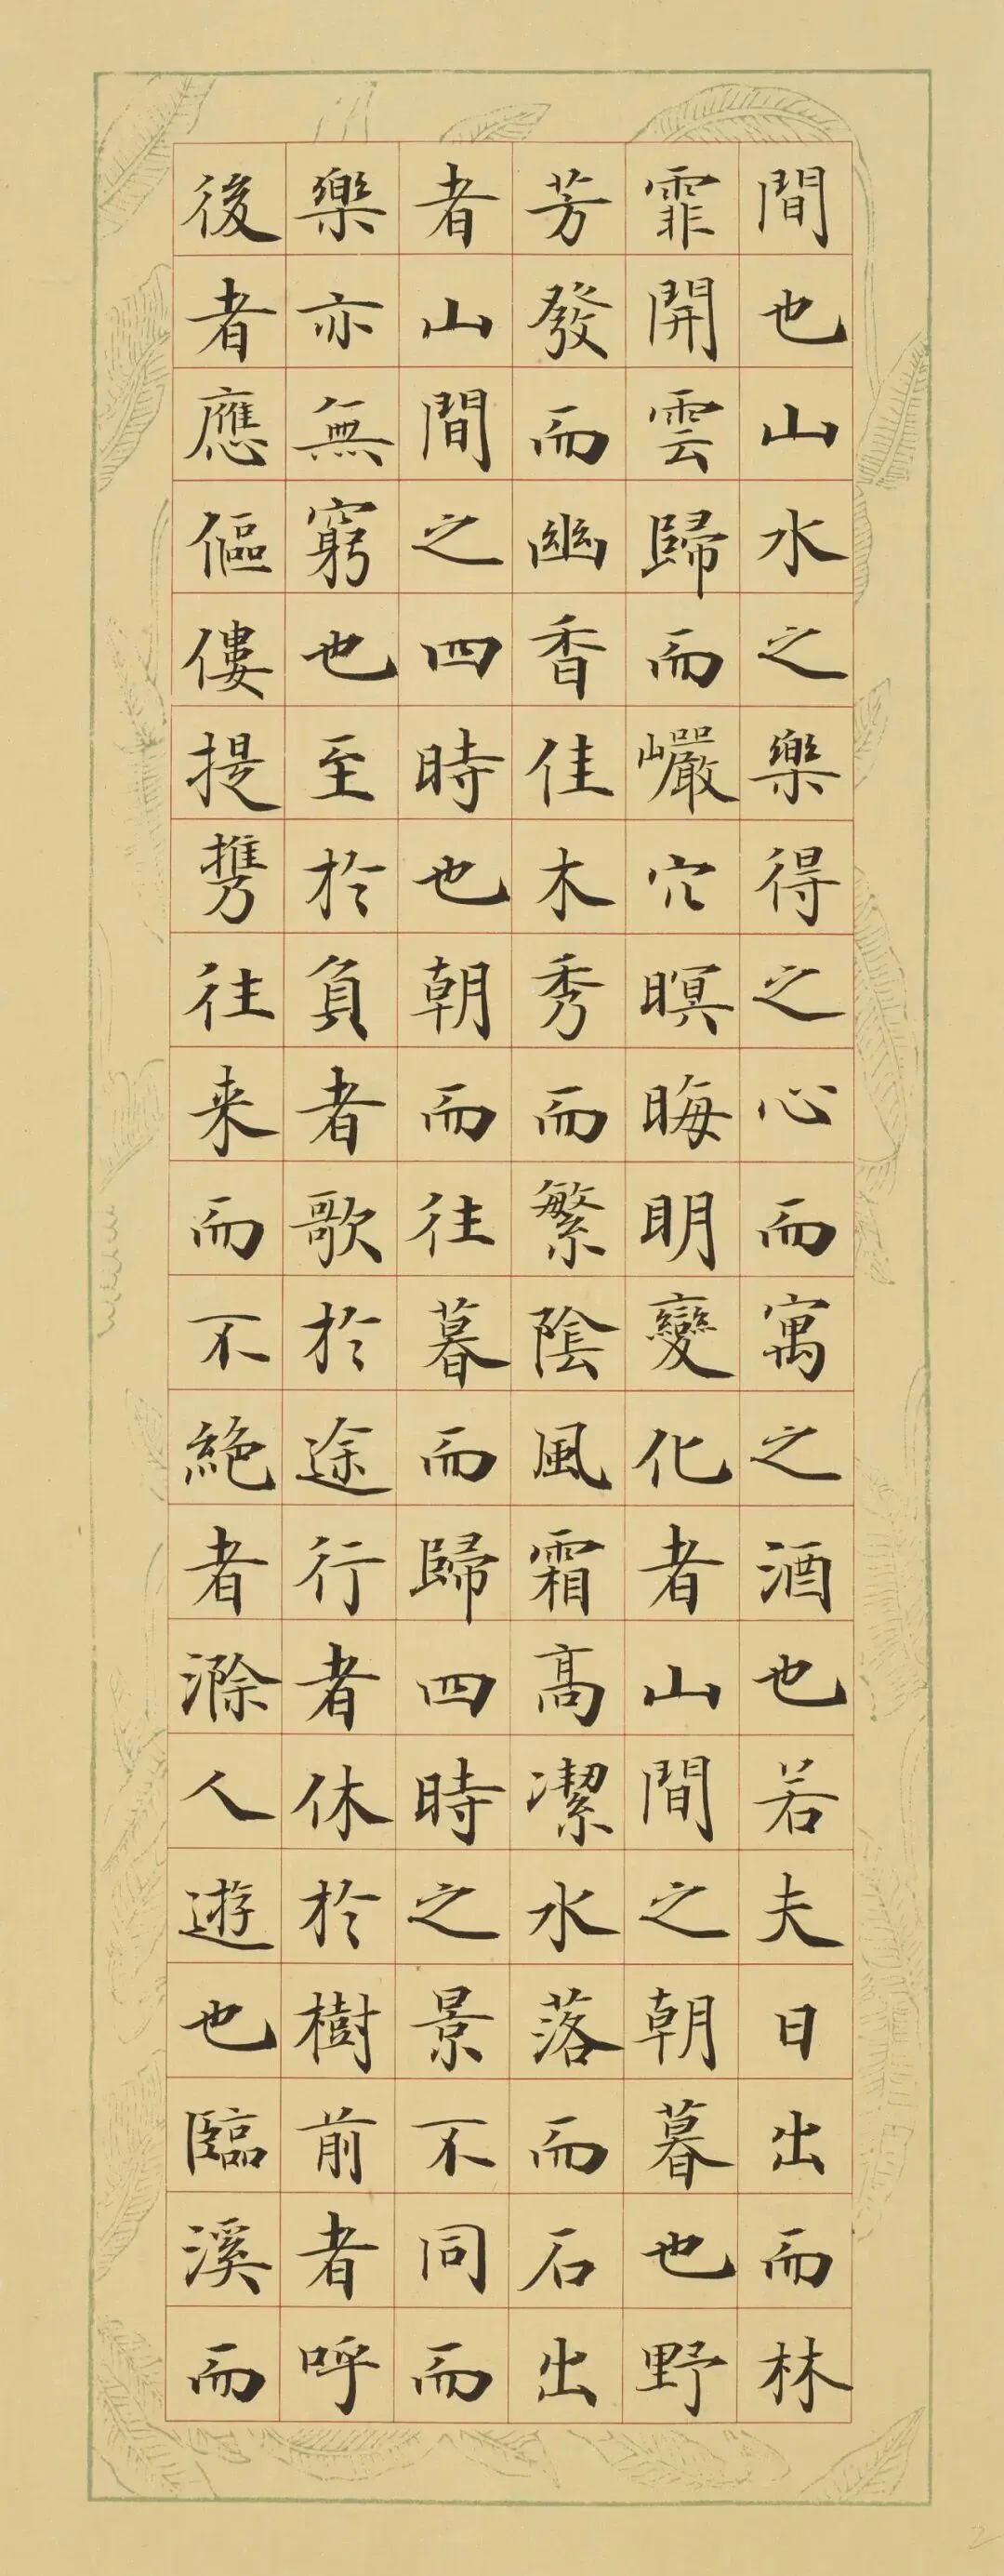 間也山水之樂得之心而寓之酒也若夫日出而林
霏開雲歸而巖穴暝晦明變化者山間之朝暮也野
芳發而幽香佳木秀而繁陰風霜高潔水落而石出
者山間之四時也朝而往暮而歸四時之景不同而
樂亦無窮也至於負者歌於途行者休於樹前者呼
後者應傴僂提攜往来而不絕者滁人遊也臨溪而